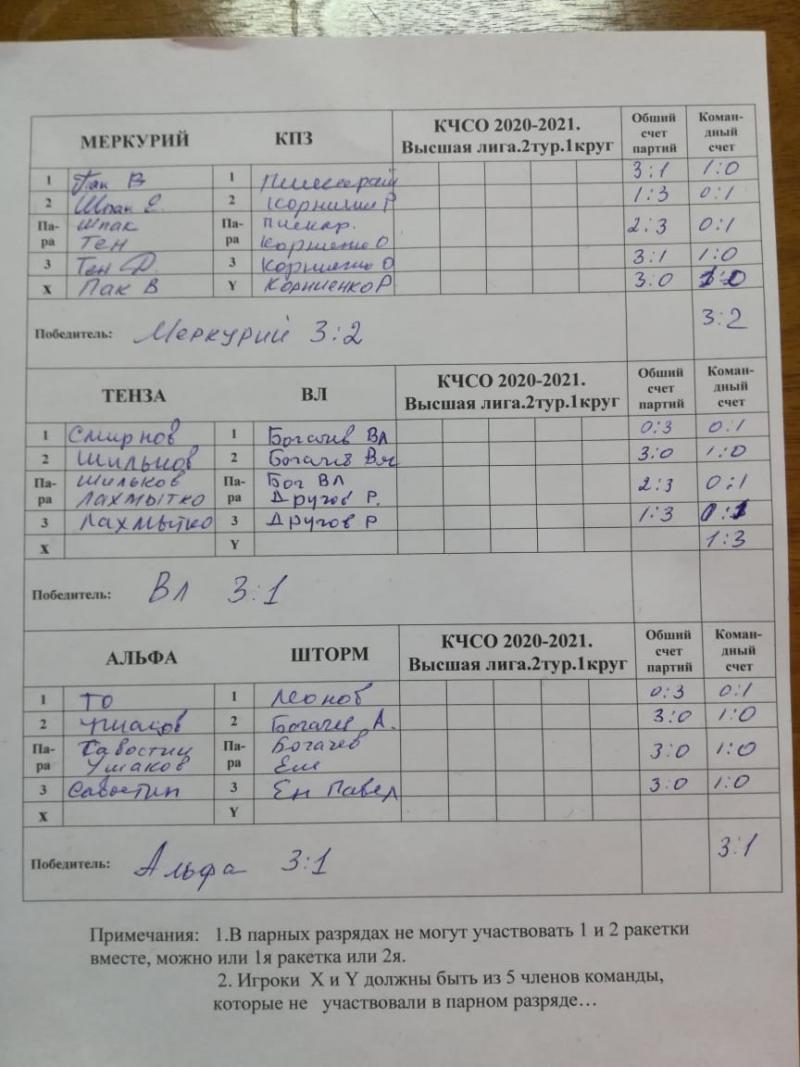 МЕРКУРИЙ КПЗ КЧСО 2020-2021. Общий Коман-
Высшая лига.2тур.1круг счет дный
партий счет
1 Пак В 1 3:1 1:0
2 Шпак Е. 2 Р 1:3 0:1
Па- Шпак Па- 2:3 0:1
ра Тен ра О
3 Тен Д. 3 О 3:1 1:0
X Пак В Y Корниенко Р 3:0 1:0
Победитель: Меркурий 3:2 3:2
ТЕНЗА ВЛ КЧСО 2020-2021. Общий Коман-
Высшая лига.2тур.1круг счет дный
партий счет
1 Смирнов 1 Богачев Вл 0:3 0:1
2 Шильков 2 Богачев Вяч 3:0 1:0
Па- Шильков Па- Бог Вл 2:3 0:1
ра Лахмытко ра Другов Р.
3 Лахмытко 3 Другов Р 1:3 0:1
X Y 1:3
Победитель: Вл 3:1
АЛЬФА ШТОРМ КЧСО 2020-2021. Общий Коман-
Высшая лига.2тур.1круг счет дный
партий счет
1 То 1 Леонов 0:3 0:1
2 Ушаков 2 Богачев А. 3:0 1:0
Па- Савостин Па- Богачев 3:0 1:0
ра Ушаков ра
3 Савостин 3 Ен Павел 3:0 1:0
X Y
Победитель: Альфа 3:1 3:1
Примечания: 1.В парных разрядах не могут участвовать 1 и 2 ракетки
вместе, можно или 1я ракетка или 2я.
2. Игроки X и Y должны быть из 5 членов команды,
которые не участвовали в парном разряде…